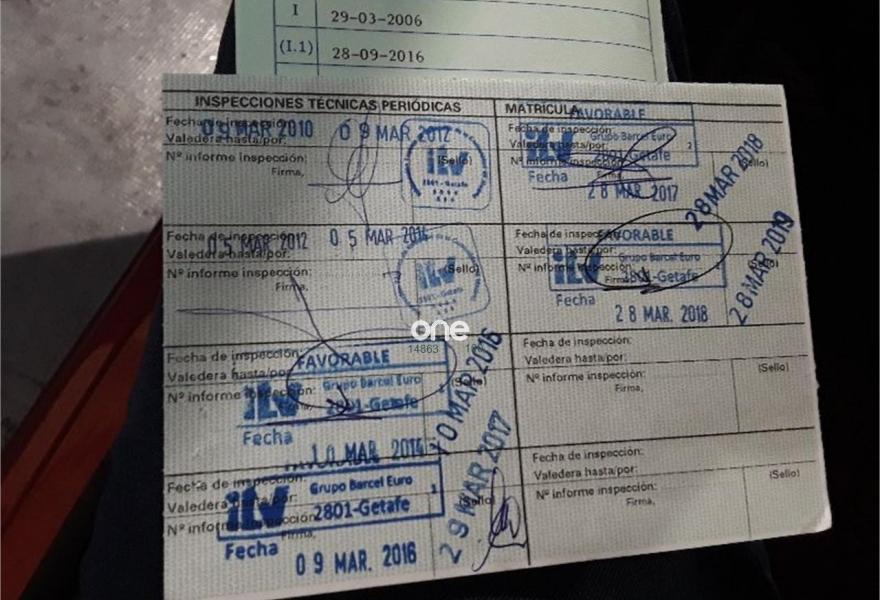 I 29-03-2006
(I.1) 28-09-2016
INSPECCIONES TÉCNICAS PERIÓDICAS
Fecha de inspección:
09 MAR 2010 09 MAR 2012
Valedera hasta/por:
Nº informe inspección:
(Sello)
Firma,
itv
2801-Getafe
Fecha de inspección:
05 MAR 2012 05 MAR 2014
Valedera hasta/por:
Nº informe inspección:
(Sello)
Firma,
itv
2801-Getafe
Fecha de inspección:
FAVORABLE
Valedera hasta/por:
Grupo Barcel Euro
Nº informe inspección:
(Sello)
itv 2801-Getafe
Fecha
10 MAR 2014
10 MAR 2016
Fecha de inspección:
Valedera hasta/por:
Grupo Barcel Euro 1
(Sello)
Nº informe inspección:
itv 2801-Getafe
Firma,
Fecha
09 MAR. 2016
29 MAR 2017
MATRICULA
FAVORABLE
Fecha de inspección:
Grupo Barcel Euro
Valedera hasta/por:
2
Nº informe inspección:
itv 2801-Getafe
(Sello)
Firma,
Fecha
28 MAR. 2017
28 MAR 2018
Fecha de inspección:
FAVORABLE
Valedera hasta/por:
Grupo Barcel Euro
Nº informe inspección:
itv 2801-Getafe
(Sello)
Firma,
Fecha
28 MAR. 2018
28 MAR 2019
Fecha de inspección:
Valedera hasta/por:
Nº informe inspección:
(Sello)
Firma,
Fecha de inspección:
Valedera hasta/por:
Nº informe inspección:
(Sello)
Firma,
one
14863